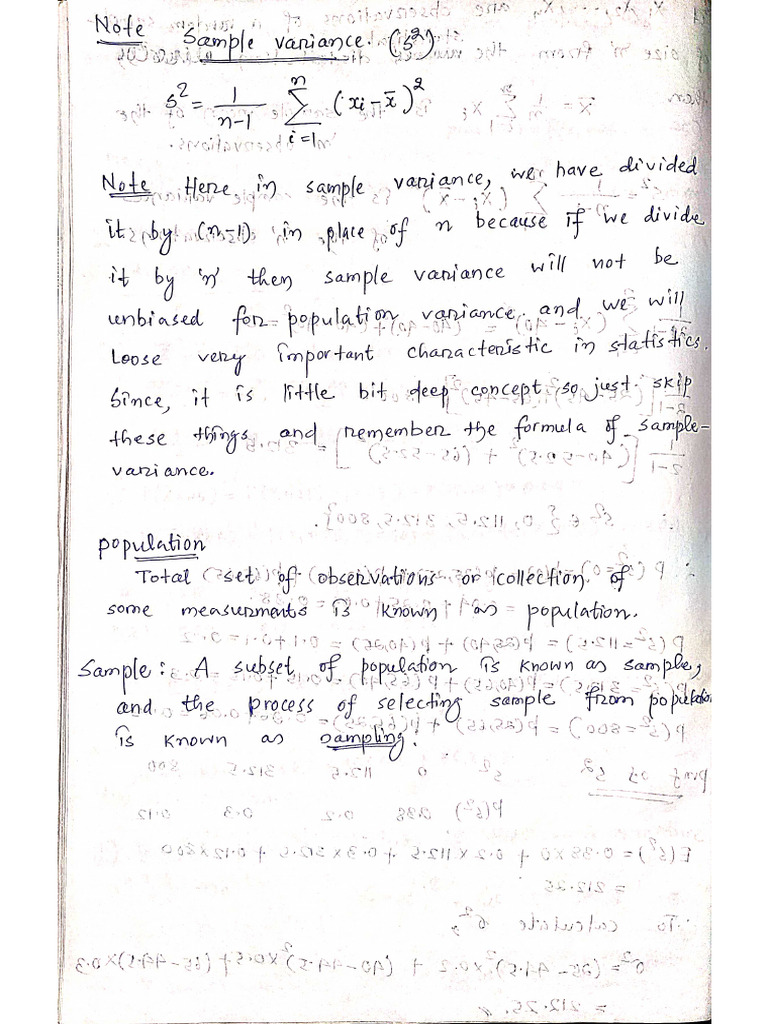 Note Sample variance. (s²)
s² = 1/(n-1) Σ_{i=1}^{n} (xi - x̄)²
Note Here in sample variance, we have divided
it by (n-1) in place of n because if we divide
it by 'n' then sample variance will not be
unbiased for population variance and we will
Loose very important characteristic in statistics.
Since, it is little bit deep concept so just skip
these things and remember the formula of sample-
variance.
population
Total set of observations or collection of
some measurments is known as population.
Sample: A subset of population is known as sample,
and the process of selecting sample from population
is known as sampling.